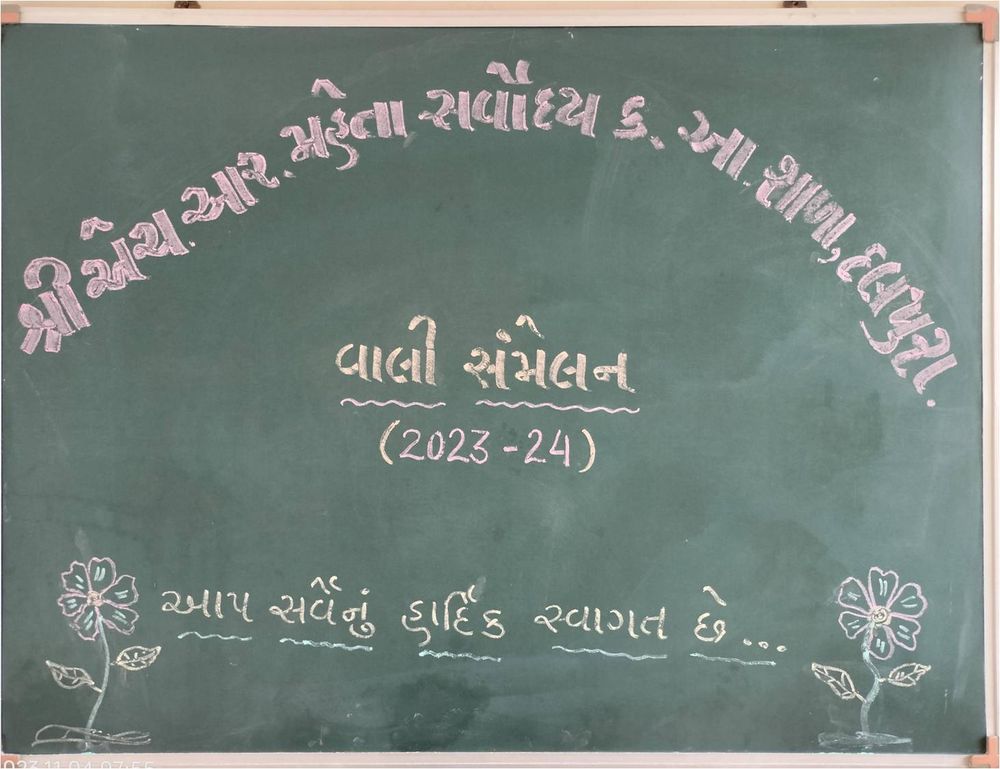 શ્રી એચ. આર. મહેતા સર્વોદય ક. આ. શાળા, દલપુરા.
વાલી સંમેલન
(2023-24)
આપ સર્વેનું હાર્દિક સ્વાગત છે...